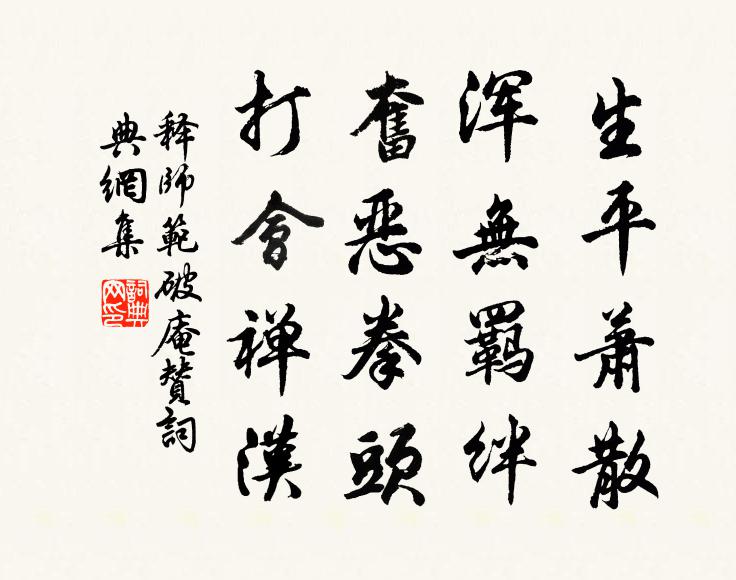 生平蕭散
浑無羈絆
奮惡拳頭
打會禅漢
释師範破庵贊詞
典網集
詞典網印